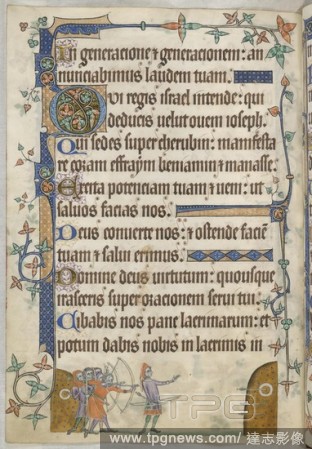 In generacione & generacionem: an
nunciabimus laudem tuam.
Qui regis israel intende: qui
deducis uelut ouem ioseph.
Qui sedes super cherubim: manifesta
re coram effraym beniamin & manasse.
Excita potenciam tuam & ueni: ut
saluos facias nos.
Deus conuerte nos: & ostende faciem
tuam & salui erimus.
Domine deus uirtutum: quousque
irasceris super oracionem serui tui.
Cibabis nos pane lacrimarum: et
potum dabis nobis in lacrimis in
TPG
www.tpgnews.com/ 達志影像